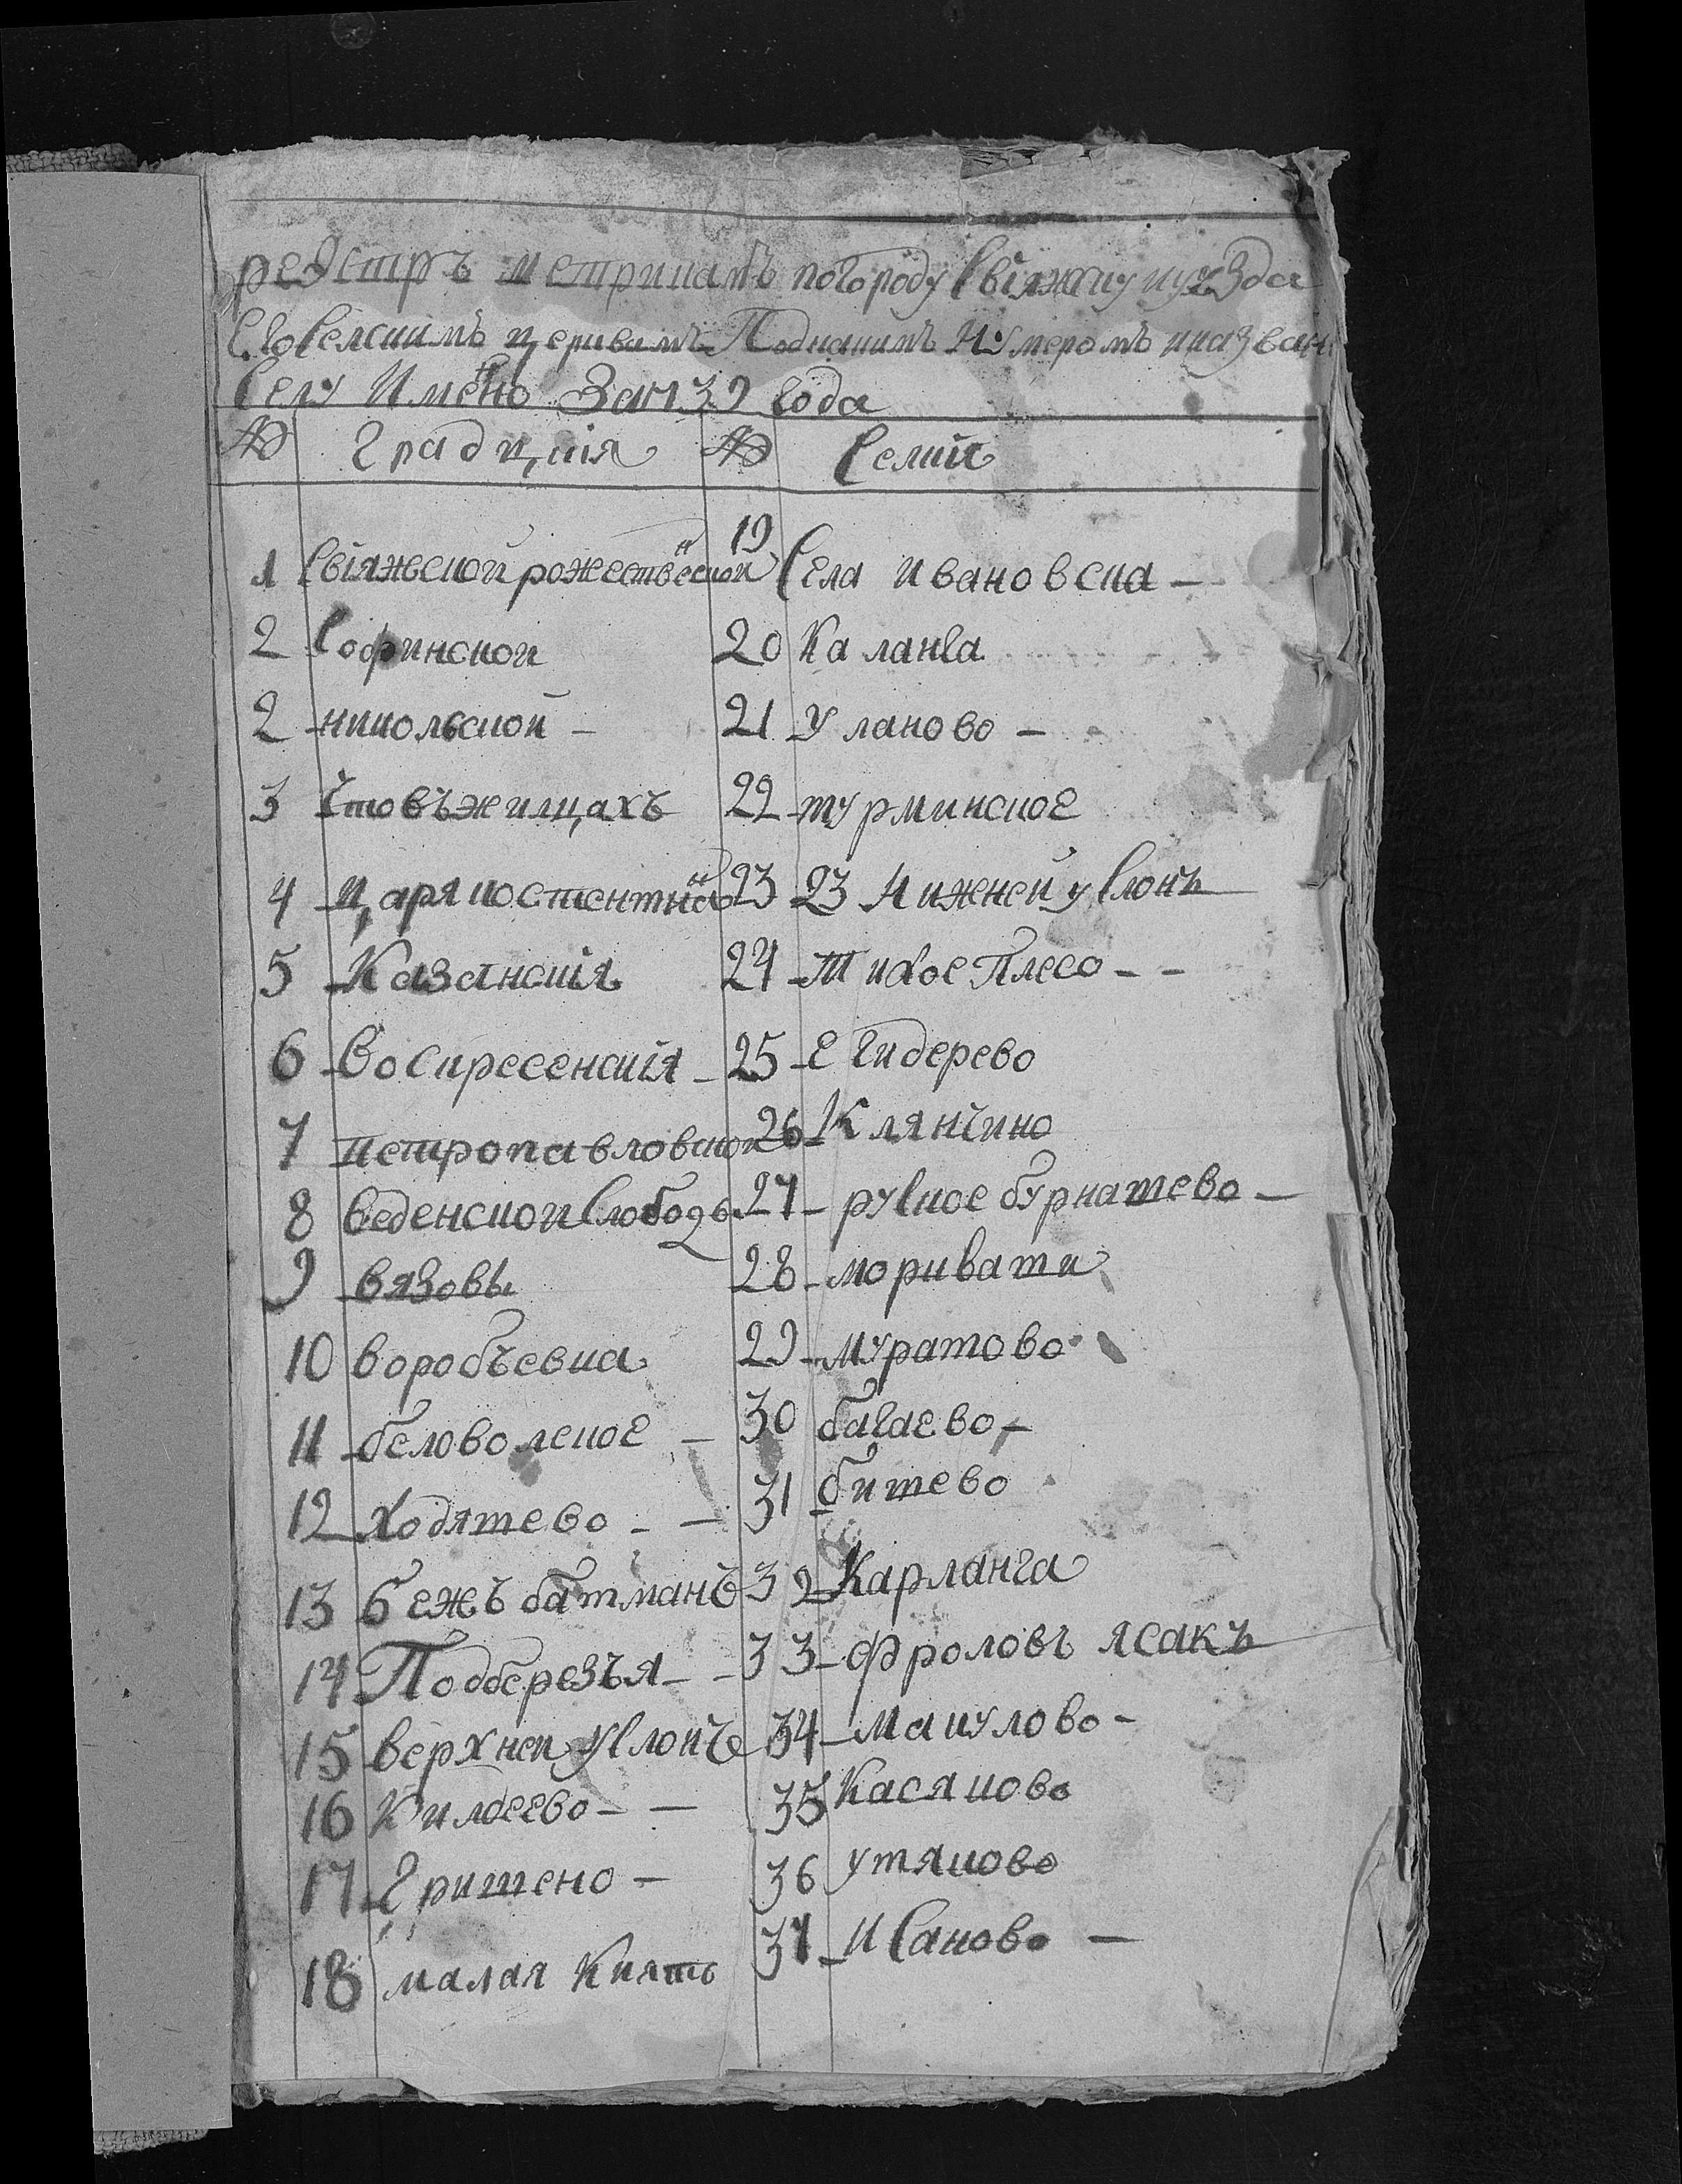 реэстръ метрикамъ погороду Свіяжку иуезда
Его Селскимъ церквамъ Подкакимъ Нумеромъ иназван
Селу Имено За 1732 года
№ Градцкія № Селкія
1 Свіяжской рожественской
2 Софииской
2 николской
3 Что въ жилцахъ
4 Царя костентина
5 Казанскія
6 Воскресенския
7 петропавловской
8 веденской Слободы
9 вязовы
10 воробъевка
11 беловолское
12 Ходятево
13 бежъ батманъ
14 Подберезъя
15 верхнеи Услонъ
16 Килдеево
17 Гришено
18 малая Киять
19 Села ивановска
20 Каланга
21 Уланово
22 турминское
23 23 Нижней услонъ
24 Тихое Плесо
25 Егидерево
26 Клянчино
27 руское бурнашево
28 моркваши
29 муратово
30 багаево
31 бишево
32 Карланга
33 Фроловъ ясакъ
34 Макулово
35 Касяково
36 утяково
37 Исаково